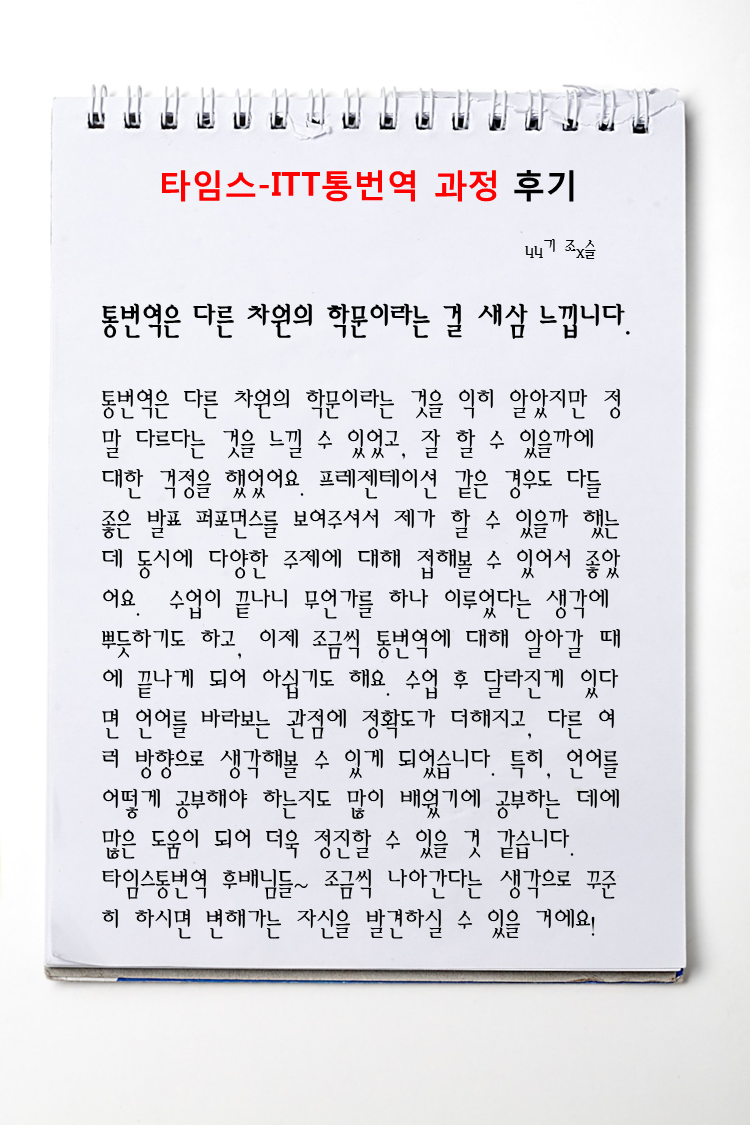 타임스-ITT통번역 과정 후기
44기 조x슬
통번역은 다른 차원의 학문이라는 걸 새삼 느낍니다.
통번역은 다른 차원의 학문이라는 것을 익히 알았지만 정
말 다르다는 것을 느낄 수 있었고, 잘 할 수 있을까에
대한 걱정을 했었어요. 프레젠테이션 같은 경우도 다들
좋은 발표 퍼포먼스를 보여주셔서 제가 할 수 있을까 했는
데 동시에 다양한 주제에 대해 접해볼 수 있어서 좋았
어요. 수업이 끝나니 무언가를 하나 이루었다는 생각에
뿌듯하기도 하고, 이제 조금씩 통번역에 대해 알아갈 때
에 끝나게 되어 아쉽기도 해요. 수업 후 달라진게 있다
면 언어를 바라보는 관점에 정확도가 더해지고, 다른 여
러 방향으로 생각해볼 수 있게 되었습니다. 특히, 언어를
어떻게 공부해야 하는지도 많이 배웠기에 공부하는 데에
많은 도움이 되어 더욱 정진할 수 있을 것 같습니다.
타임스통번역 후배님들~ 조금씩 나아간다는 생각으로 꾸준
히 하시면 변해가는 자신을 발견하실 수 있을 거에요!